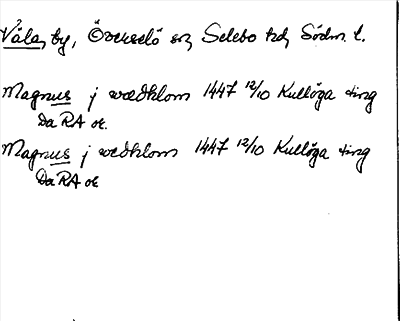 Våla, by, Överselö sn, Selebo hd, Södm. l.
Magnus j wædhlom 1447 12/10 Kullöga ting
Da RA or.
Magnus j wedhlom 1447 12/10 Kullöga ting
Da RA or